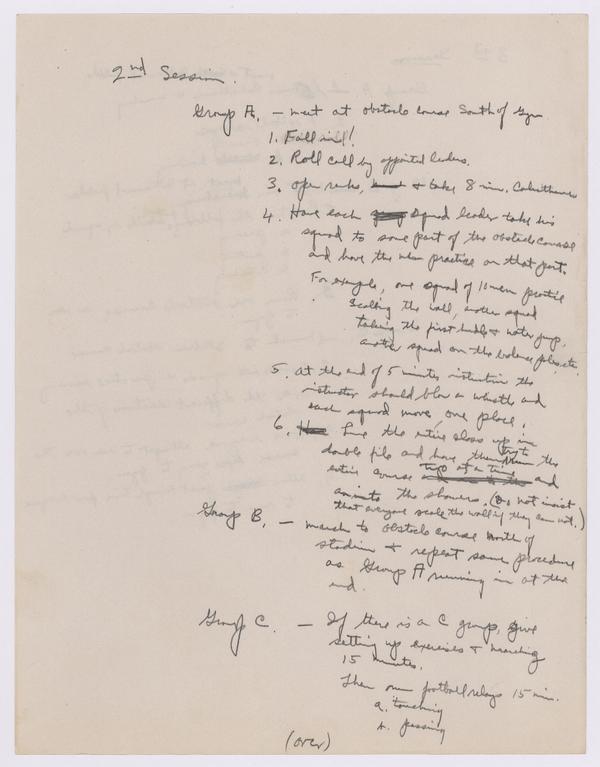 2nd Session.
Group A. — meet at obstacle course South of Gym
1. Fall in!
2. Roll call by appointed leaders.
3. open ranks, & take 8 min. Calisthenics
4. Have each squad leader take his
squad to some part of the obstacle course
and have the men practice on that part.
For example, one squad of 10 men practice
scaling the wall, another squad
taking the first hurdle & water jump,
another squad on the balance poles, etc.
5. at the end of 5 minutes instruction the
instructor should blow a whistle and
each squad moves one place.
6. Line the entire class up in
double file and have them run the
entire course and
in to the showers. (Do not insist
that everyone scale the wall if they can not.)
Group B. — march to obstacle course North of
stadium & repeat same procedure
as Group A running in at the
end.
Group C. — If there is a C group, give
setting up exercises & marching
15 minutes.
Then run football relays 15 min.
a. touching
b. passing
(over)